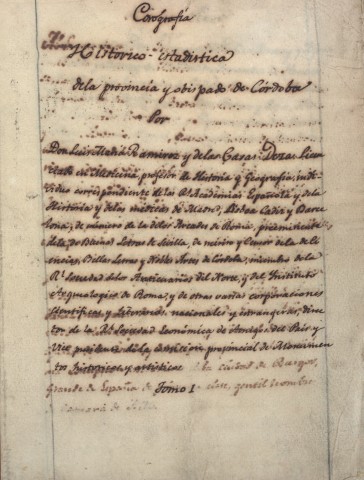 Corografía
Historico-estadistica
de la provincia y obispado de Córdoba
Por
Don Luis Maria Ramirez y de las Casas-Deza: Licen
ciado en Medicina, profesor de Historia y Geografía: indi
viduo correspondiente de las Rs. Academias Española y de la
Historia y de las médicas de Madrid, Cadiz y Barce
lona; de número de la de los Arcades de Roma, preeminente
de la de Buenas Letras de Sevilla, de mérito y Censor de la de Ci
encias, Bellas Letras y Nobles Artes de Córdoba, miembro de la
Rl. Sociedad de los Anticuarios del Norte, y del Instituto
Arqueologico de Roma, y de otras varias corporaciones
cientificas y Literarias, nacionales y extrangeras, direc
tor de la Rl. Sociedad Económica de Amigos del Pais y
Vice presidente de la comision provincial de Monumen
tos historicos y artisticos la ciudad de Burgos,
Grande de España de Tomo I clase, gentil hombre
de camara de